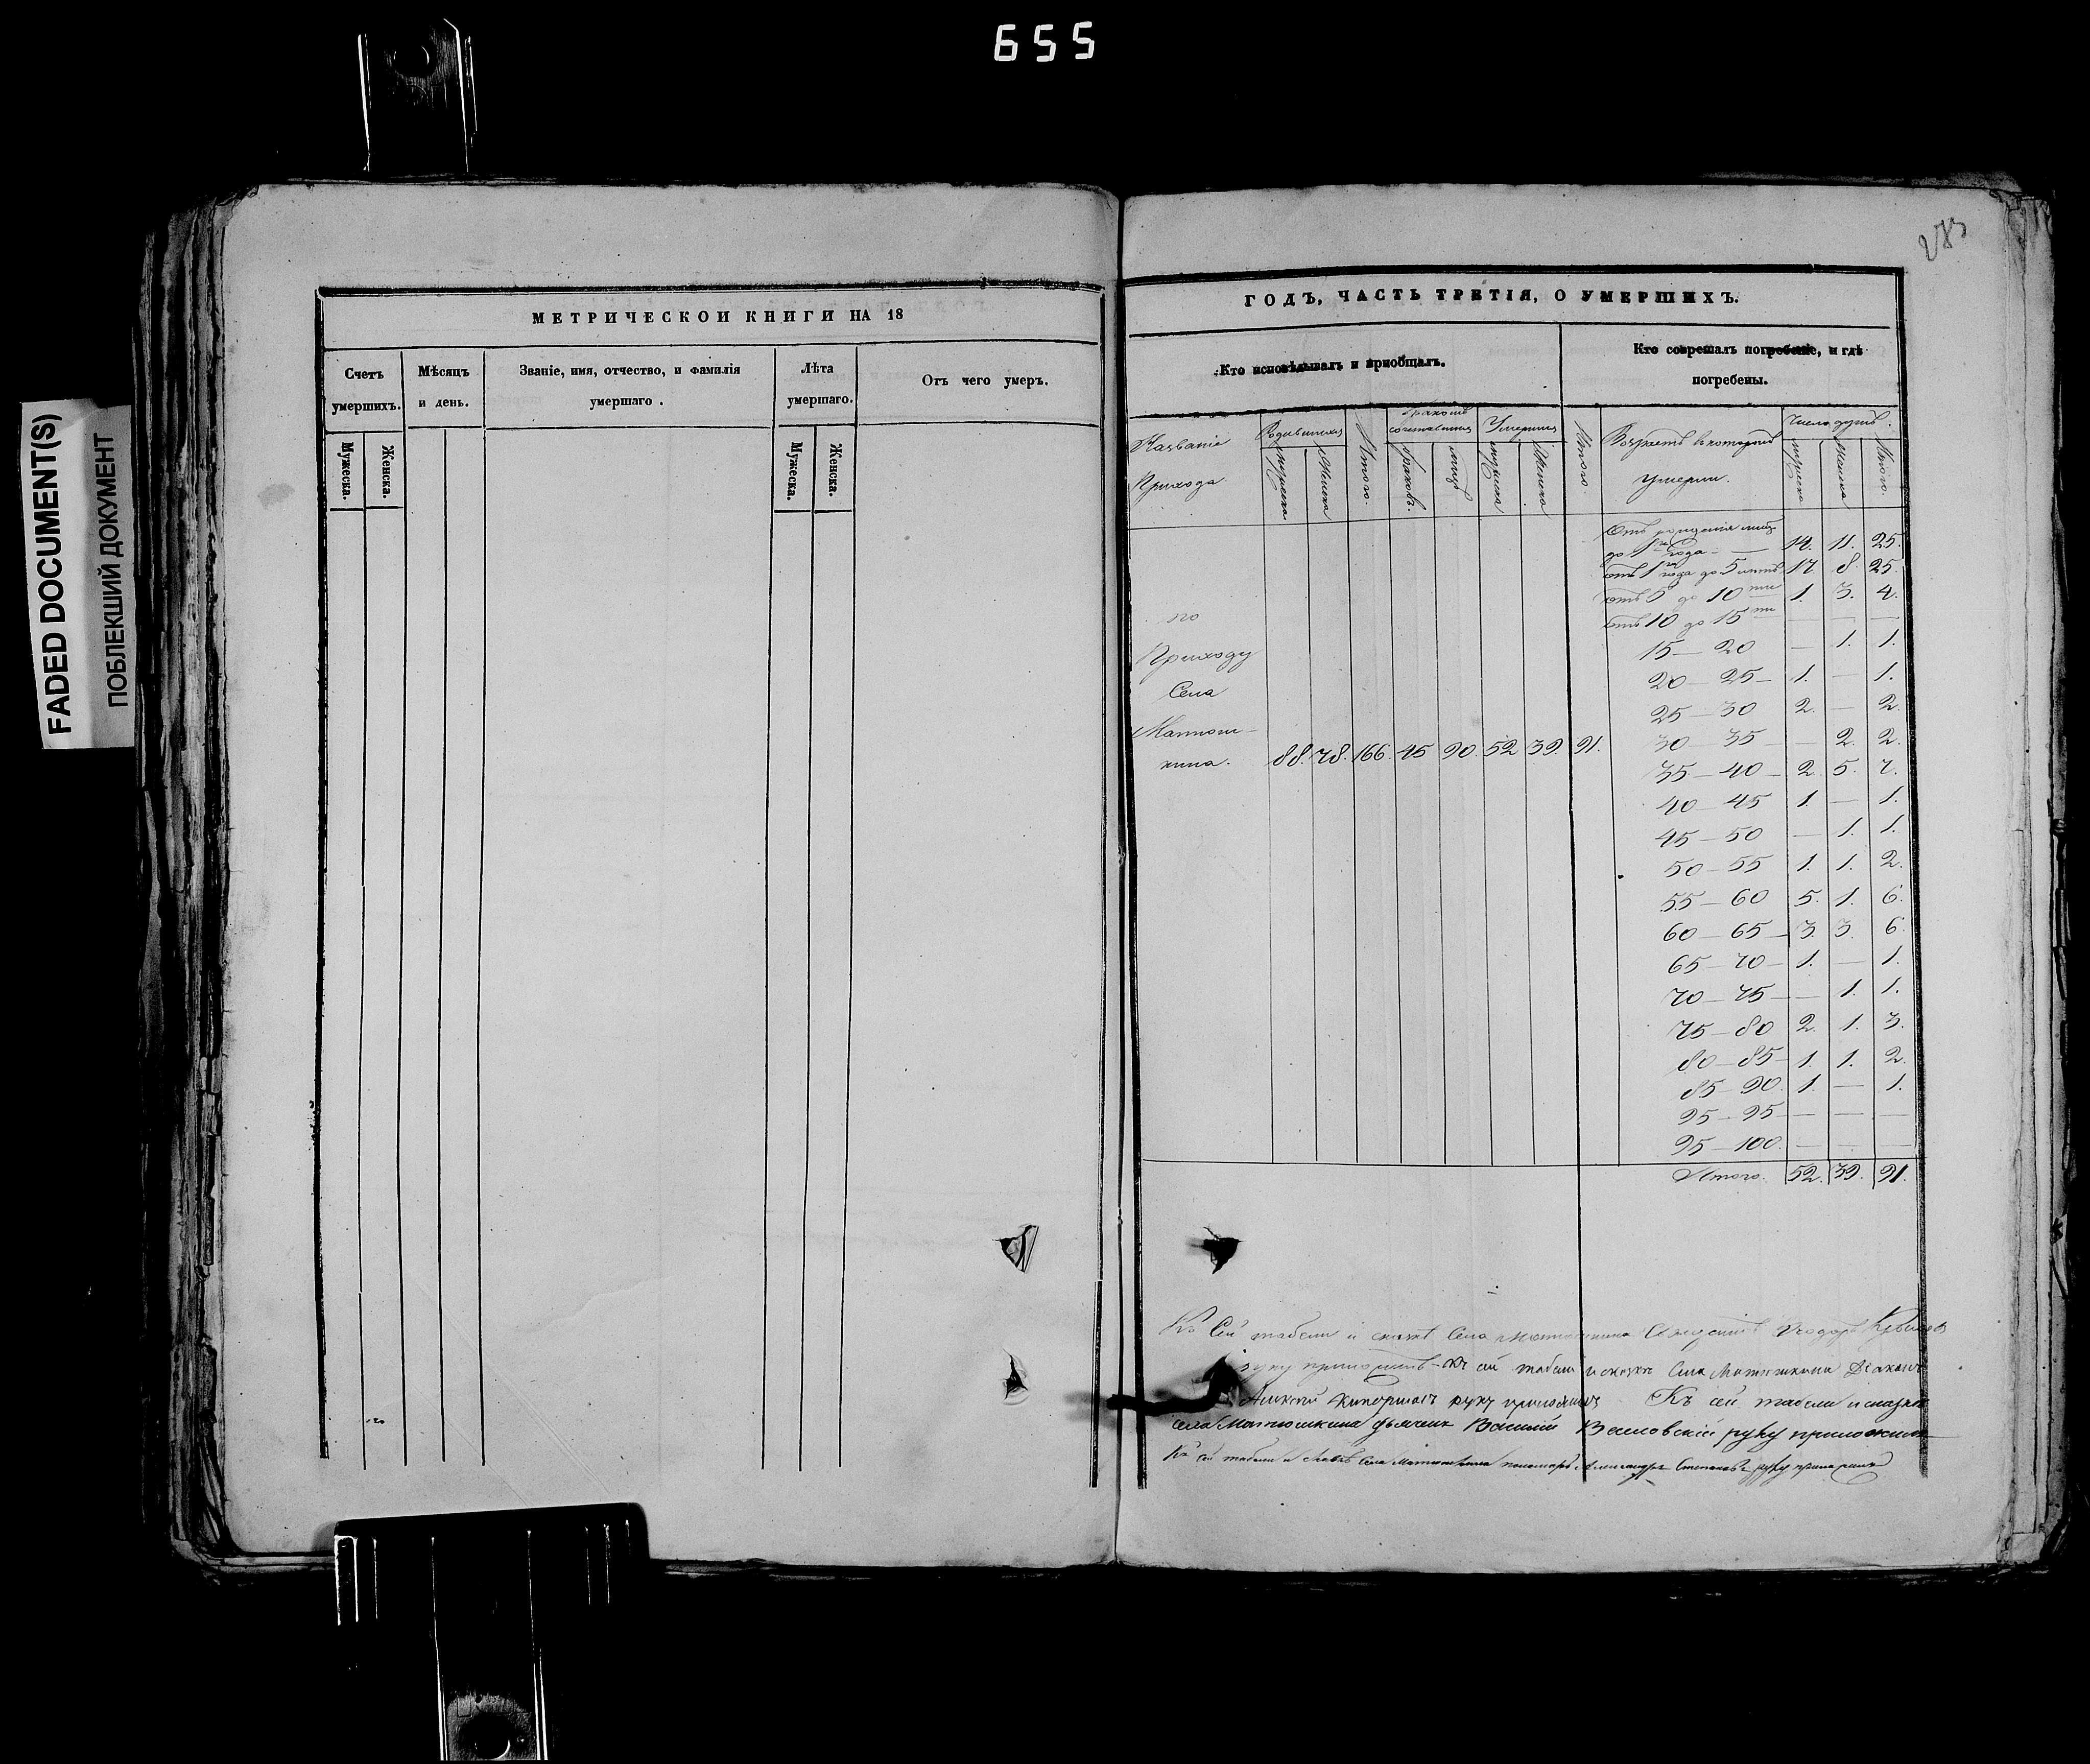 655
FADED DOCUMENT(S)
ПОБЛЕКШИЙ ДОКУМЕНТ
МЕТРИЧЕСКОЙ КНИГИ НА 18
Счетъ умершихъ.
Мѣсяцъ и день.
Званіе, имя, отчество, и фамилія умершаго .
Лѣта умершаго.
Отъ чего умеръ.
Мужеска.
Женска.
Мужеска.
Женска.
283
ГОДЪ, ЧАСТЬ ТРЕТІЯ, О УМЕРШИХЪ.
Кто исповѣдывалъ и пріобщалъ.
Кто совершалъ погребеніе, и гдѣ погребены.
Названіе Прихода
Родившихся
мужеска
женска
Итого.
Бракомъ сочетавшихся
браковъ.
лицъ
Умершихъ
мужеска
женска
Итого.
Возрастъ въ которомъ Умерли.
Число душъ.
мужеска
женска
Итого.
по
Приходу
Села
Матюш-
кина. 88. 78. 166. 45 90. 52 39. 91.
Отъ рожденія
до 1го года — 14. 11. 25.
отъ 1го года до 5 лѣтъ 17. 8. 25.
отъ 5 до 10ти 1. 3. 4.
отъ 10 до 15ти — — —
15 — 20 — 1. 1.
20 — 25 — 1. — 1.
25 — 30 2. — 2.
30 — 35 — — 2. 2.
35 — 40 — 2. 5. 7.
40 — 45 1. — 1.
45 — 50 — 1. 1.
50 — 55 1. 1. 2.
55 — 60 5. 1. 6.
60 — 65 — 3. 3. 6.
65 — 70 — 1. — 1.
70 — 75 — — 1. 1.
75 — 80 2. 1. 3.
80 — 85 — 1. 1. 2.
85 — 90. 1. — 1.
95 — 95 — — — —
95 — 100. — — —
Итого. 52. 39. 91.
Къ сей табели и Села Матюшкина Священникъ Ѳеодоръ
руку приложилъ Къ сей табели и Села Матюшкина Діаконъ
Алексій руку приложилъ Къ сей табели и
села Матюшкина дьячекъ Василій руку приложилъ
Къ сей табели и Села Матюшкина пономарь Александръ Степановъ руку приложилъ